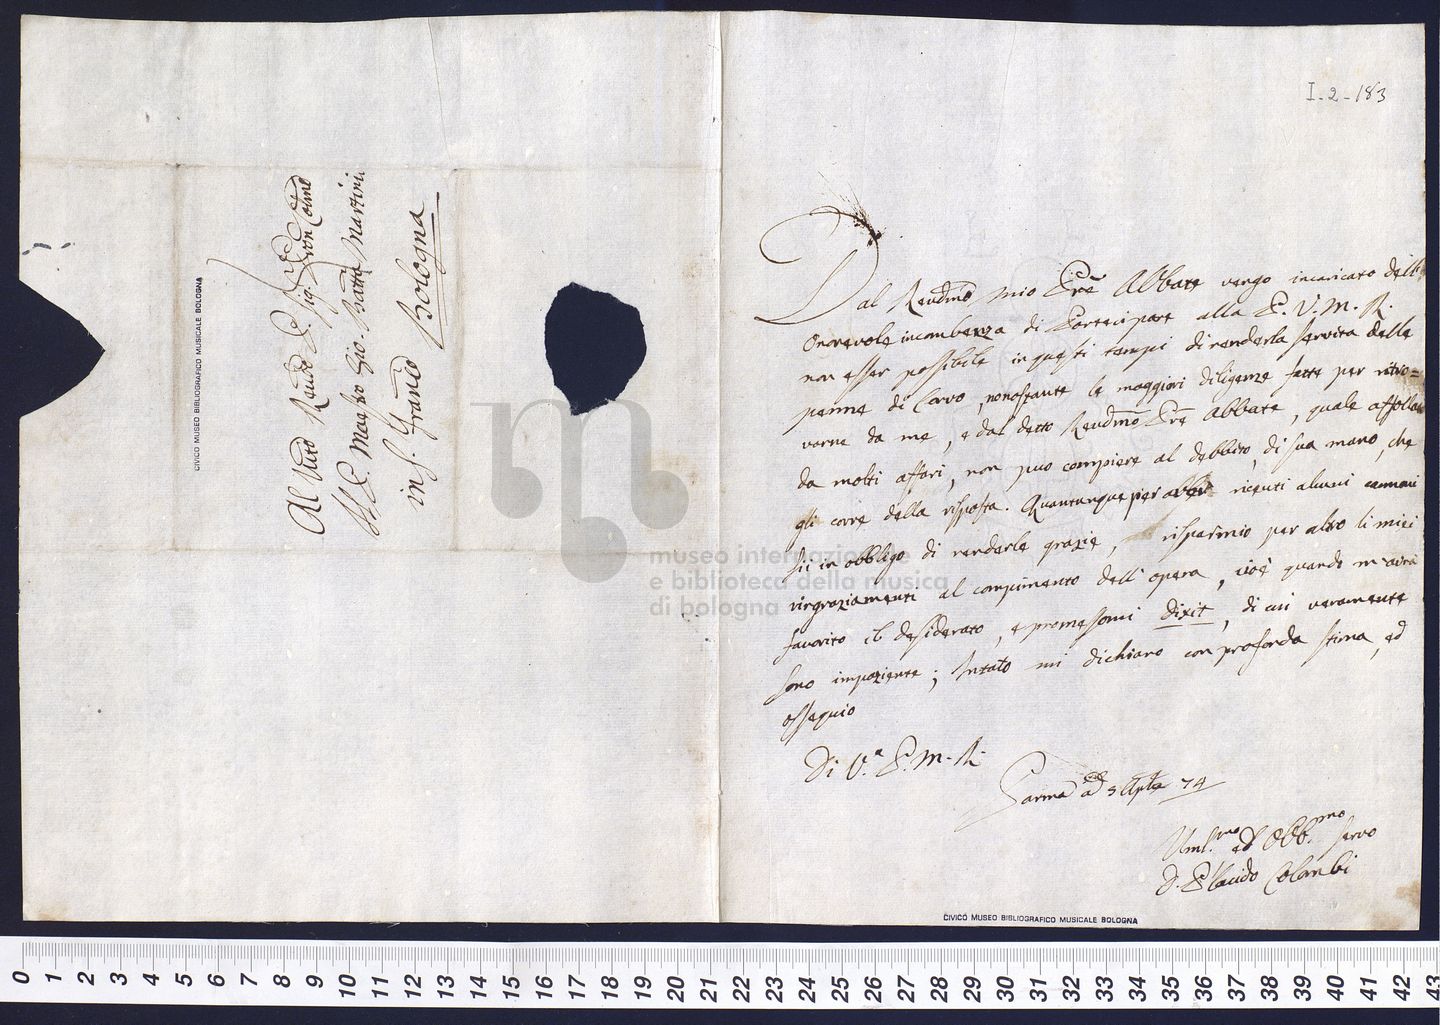 I-2-183
Dal Revdmo mio Pre Abbate vengo incaricato dell'
Onorevole incombenza di Partecipare alla P. V. M. R.
non esser possibile in questi tempi di renderla servita delle
penne di Corvo, nonostante le maggiori diligenze fatte per ritro=
varne da me, e dal detto Revdmo Pre Abbate, quale affollato
da molti affari, non puo compiere al debbito, di sua mano, che
gli corre della risposta. Quantunque per aver riceuti alcuni cannoni
sii in obbligo di renderle grazie, risparmio per altro li miei
ringraziamenti al compimento dell' opera, cioè quando m'avrà
favorito il desiderato, e promessomi Dixit, di cui veramente
sono impaziente; Intato mi dichiaro con profonda stima, ed
ossequio
Di V.a P. M. R.
Parma 74
Uml.mo ed Obb.mo servo
D. Placido Colombi
CIVICO MUSEO BIBLIOGRAFICO MUSICALE BOLOGNA
Al Revdo P. Sig. Pron Colmo
Il P. Maestro Gio. Batta Martini
in S. Franco
Bologna
CIVICO MUSEO BIBLIOGRAFICO MUSICALE BOLOGNA
museo internazionale
e biblioteca della musica
di bologna
0 1 2 3 4 5 6 7 8 9 10 11 12 13 14 15 16 17 18 19 20 21 22 23 24 25 26 27 28 29 30 31 32 33 34 35 36 37 38 39 40 41 42 43